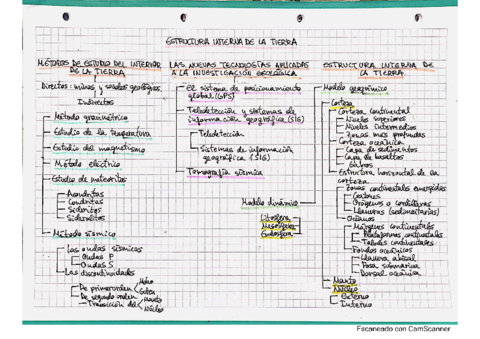 ESTRUCTURA INTERNA DE LA TIERRA
MÉTODOS DE ESTUDIO DEL INTERIOR
DE LA TIERRA
Directos: minas y sondeos geológicos
Indirectos
Método gravimétrico
Estudio de la temperatura
Estudio del magnetismo
Método eléctrico
Estudio de meteoritos
Acondritas
Condritas
Sideritos
Siderolitos
Método sísmico
Las ondas sísmicas
Ondas P
Ondas S
Las discontinuidades
De primer orden
Moho
Guten
De segundo orden
Transición del
manto
Núcleo
LAS NUEVAS TECNOLOGÍAS APLICADAS
A LA INVESTIGACIÓN GEOLÓGICA
El sistema de posicionamiento
global (GPS)
Teledetección y sistemas de
información geográfica (SIG)
Teledetección
Sistemas de información
geográfica (SIG)
Tomografía sísmica
ESTRUCTURA INTERNA DE
LA TIERRA
Modelo geoquímico
Corteza
Corteza continental
Niveles superiores
Niveles intermedios
Zonas más profundas
Corteza oceánica
Capa de sedimentos
Capa de basaltos
Gabros
Estructura horizontal de la
corteza
Zonas continentales emergidas
Cratones
Orógenos o cordilleras
Llanuras (sedimentarias)
Océanos
Márgenes continentales
Plataformas continentales
Taludes continentales
Fondos oceánicos
Llanura abisal
Fosa submarina
Dorsal oceánica
Manto
Núcleo
Externo
Interno
Modelo dinámico
Litosfera
Mesosfera
Endosfera
Escaneado con CamScanner